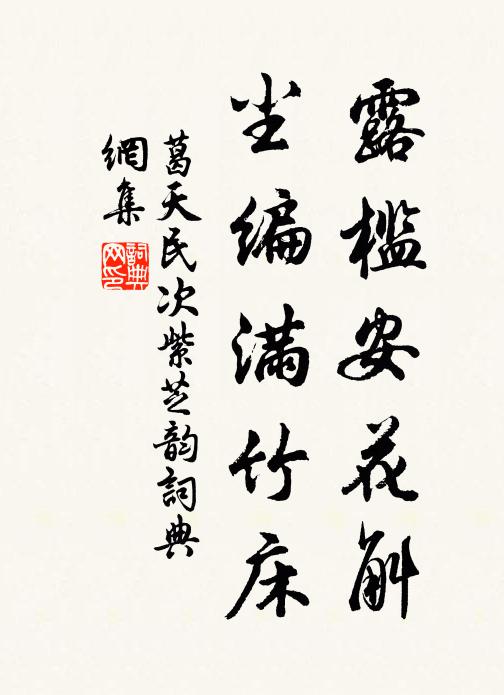 露槛安花斛
尘编满竹床
葛天民次紫芝韵詞典
網集
詞典网印